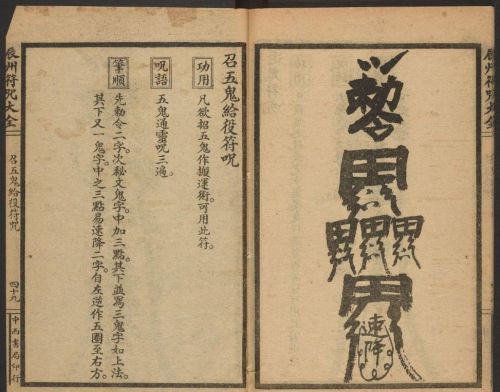 辰州符呪大全
勅令
速降
召五鬼給役符呪
功用
凡欲招五鬼作搬運術。可用此符。
呪語
五鬼通靈呪三遍。
筆順
先勅令二字。次秘文鬼字。中加三點。其下並寫三鬼字如上法。
其下又一鬼字。中之三點易速降二字。自左逆作五圈至右方。
辰州符呪大全
召五鬼給役符呪
四十九
中西書局印行